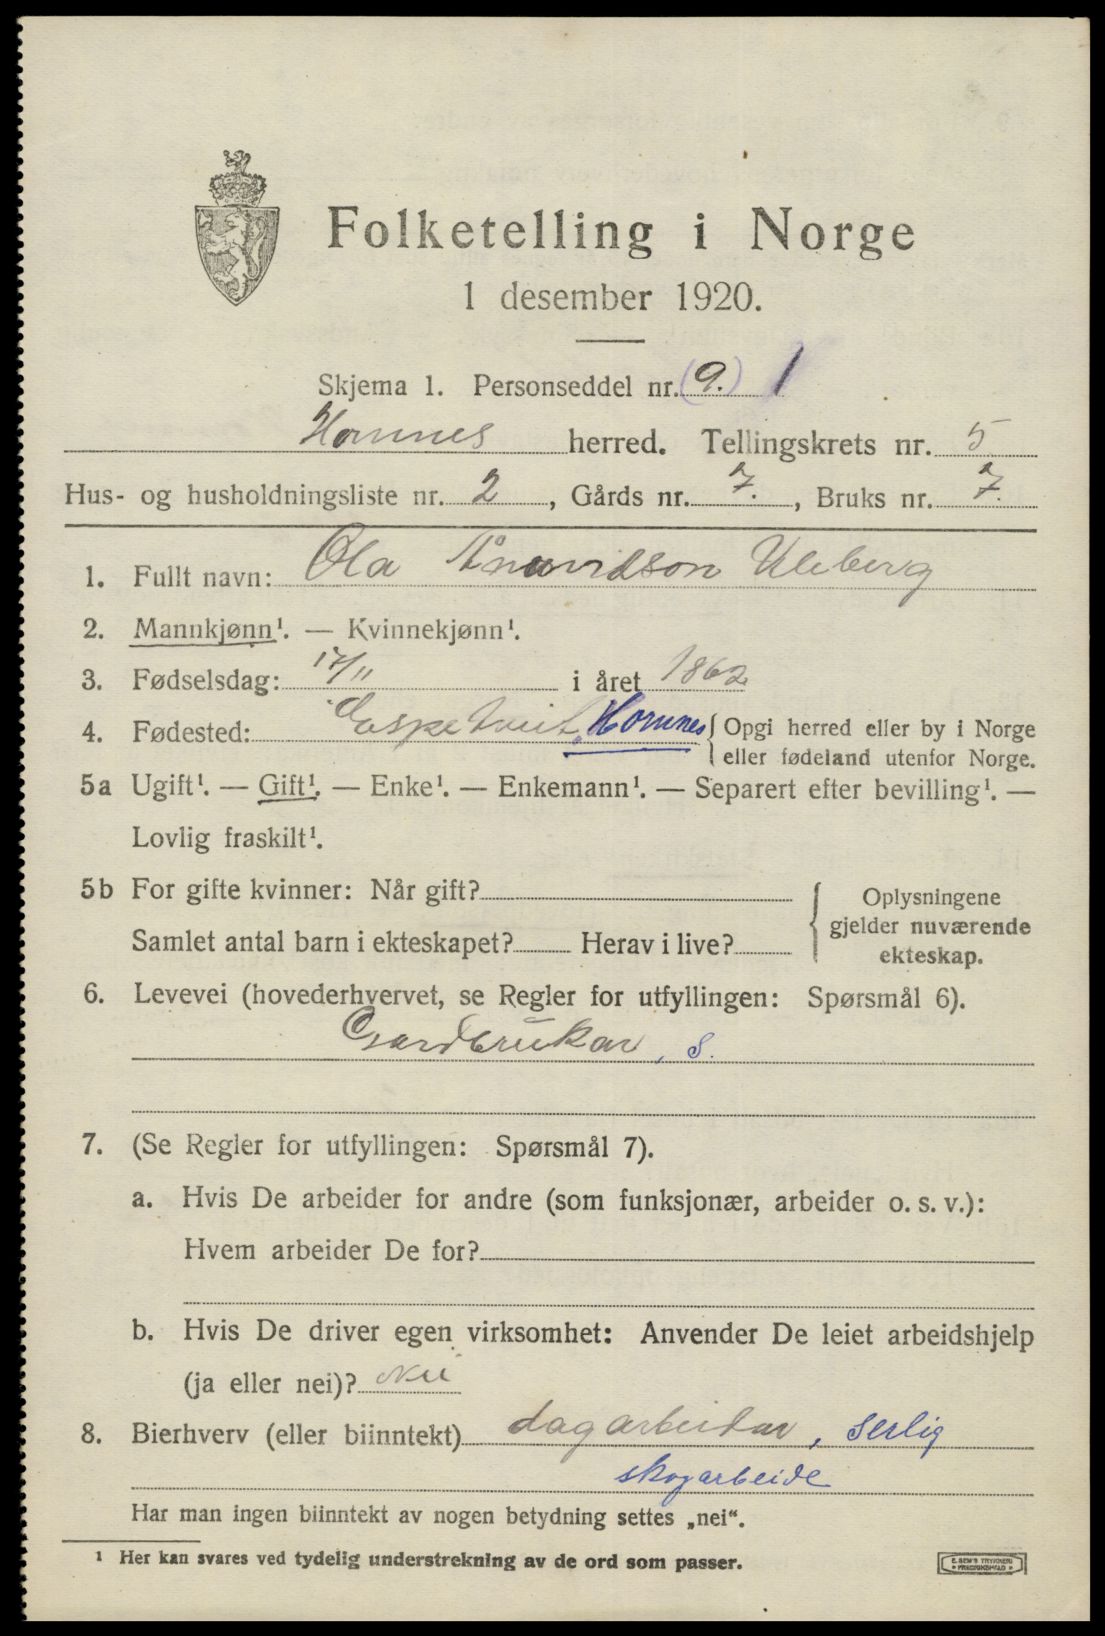 Folketelling i Norge
1 desember 1920.
Skjema 1. Personseddel nr. (9.) 1
Hornnes herred. Tellingskrets nr. 5
Hus- og husholdningsliste nr. 2, Gårds nr. 7., Bruks nr. 7.
1. Fullt navn: Ola Uleberg
2. Mannkjønn¹. — Kvinnekjønn¹.
3. Fødselsdag: 17/11 i året 1862
4. Fødested: Hornnes { Opgi herred eller by i Norge
eller fødeland utenfor Norge.
5a Ugift¹. — Gift¹. — Enke¹. — Enkemann¹. — Separert efter bevilling¹. —
Lovlig fraskilt¹.
5b For gifte kvinner: Når gift?
Samlet antal barn i ekteskapet? Herav i live?
{ Oplysningene
gjelder nuværende
ekteskap.
6. Levevei (hovederhvervet, se Regler for utfyllingen: Spørsmål 6).
Gardbrukar, s.
7. (Se Regler for utfyllingen: Spørsmål 7).
a. Hvis De arbeider for andre (som funksjonær, arbeider o. s. v.):
Hvem arbeider De for?
b. Hvis De driver egen virksomhet: Anvender De leiet arbeidshjelp
(ja eller nei)? nei
8. Bierhverv (eller biinntekt) dagarbeidar, serlig
skogarbeide
Har man ingen biinntekt av nogen betydning settes „nei“.
¹ Her kan svares ved tydelig understrekning av de ord som passer.
E. SEM'S TRYKKERI
FREDRIKSHALD